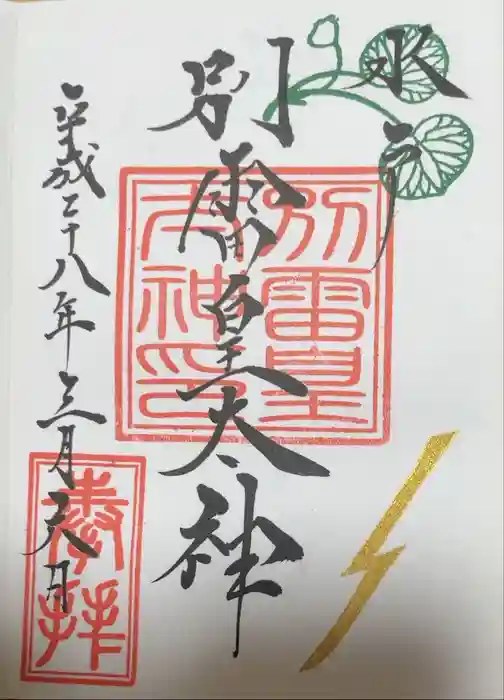 水戸
別雷皇太神
平成二十八年三月日
別雷皇
太神印
奉拝